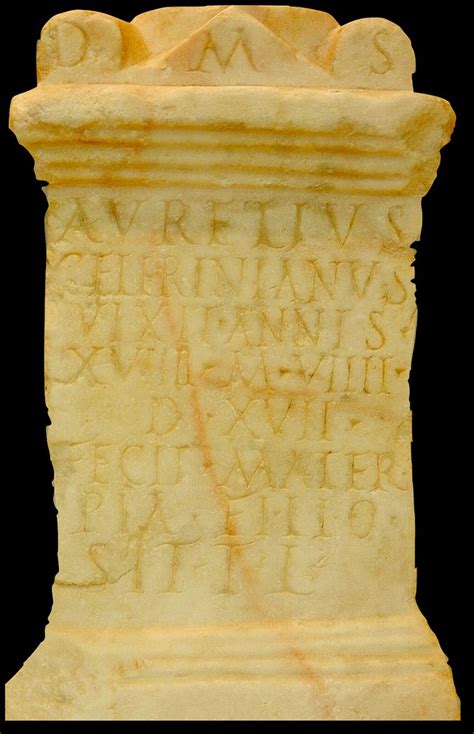 D M S
AVRELIVS
CELERINIANVS
VIXIT·ANNIS
XVIII·M·VIIII·
D·XVII·
FECIT·MATER·
PIA·FILIO·
S·T·T·L·